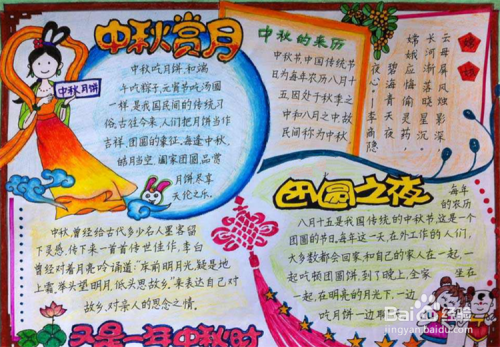 中秋赏月
中秋月饼
中秋吃月饼,和端
午吃粽子,元宵节吃汤圆
一样,是我国民间的传统习
俗,古往今来,人们把月饼当作
吉祥、团圆的象征,每逢中秋,
皓月当空,阖家团圆品赏
月饼尽享
天伦之乐。
中秋的来历
中秋节中国传统节
日为每年农历八月十
五,因处于秋季之
中和八月之中故
民间称为中秋.
嫦娥
云母屏风烛影深,
长河渐落晓星沉
嫦娥应悔偷灵药,
碧海青天夜
夜心——李商隐
中秋,曾经给古代多少名人墨客留
下灵感,传下来一首首传世佳作,李白
曾经对着月亮吟诵道:“床前明月光,疑是地
上霜,举头望明月,低头思故乡。”来表达自己对
故乡,对亲人的思念之情。
团圆之夜
每年
的农历
八月十五是我国传统的中秋节,这是一个
团圆的节日,每年这一天,在外工作的人们,
大多数都会回家,和自己的家人在一起,一
起吃顿团圆饼,到了晚上,全家 坐在
一起,在明亮的月光下,一边
吃月饼一边
又是一年中秋时
Baidu 经验
jingyan.baidu.com